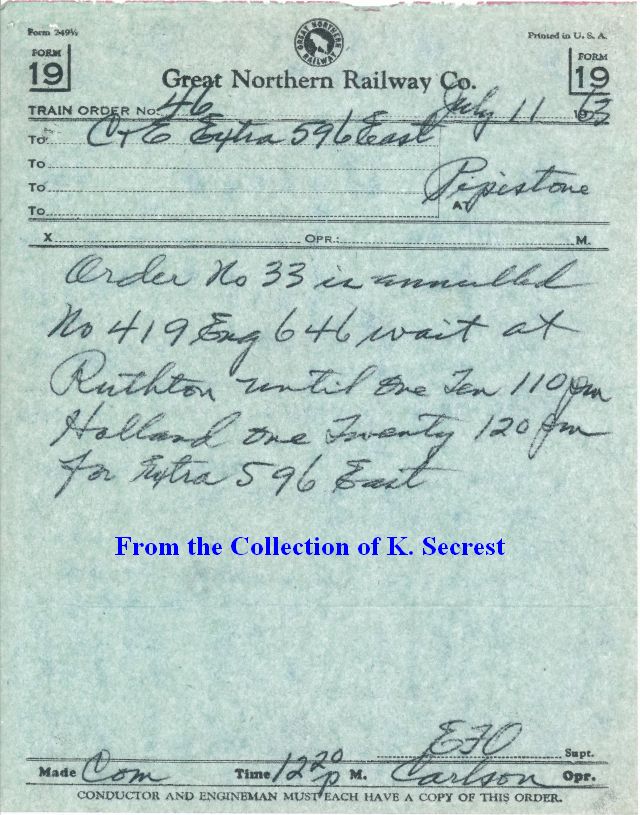 Form 249½
Printed in U. S. A.
GREAT NORTHERN RAILWAY
FORM 19
FORM 19
Great Northern Railway Co.
TRAIN ORDER No. 46 July 11 1963
To C+E Extra 596 East
To
To Pipistone
AT
To
X OPR.: M.
Order No 33 is annulled
No 419 Eng 646 wait at
Ruthton until One Ten 110 pm
Holland One Twenty 120 pm
for Extra 596 East
From the Collection of K. Secrest
EFO Supt.
Made Com Time 1220 p M. Carlson Opr.
CONDUCTOR AND ENGINEMAN MUST EACH HAVE A COPY OF THIS ORDER.